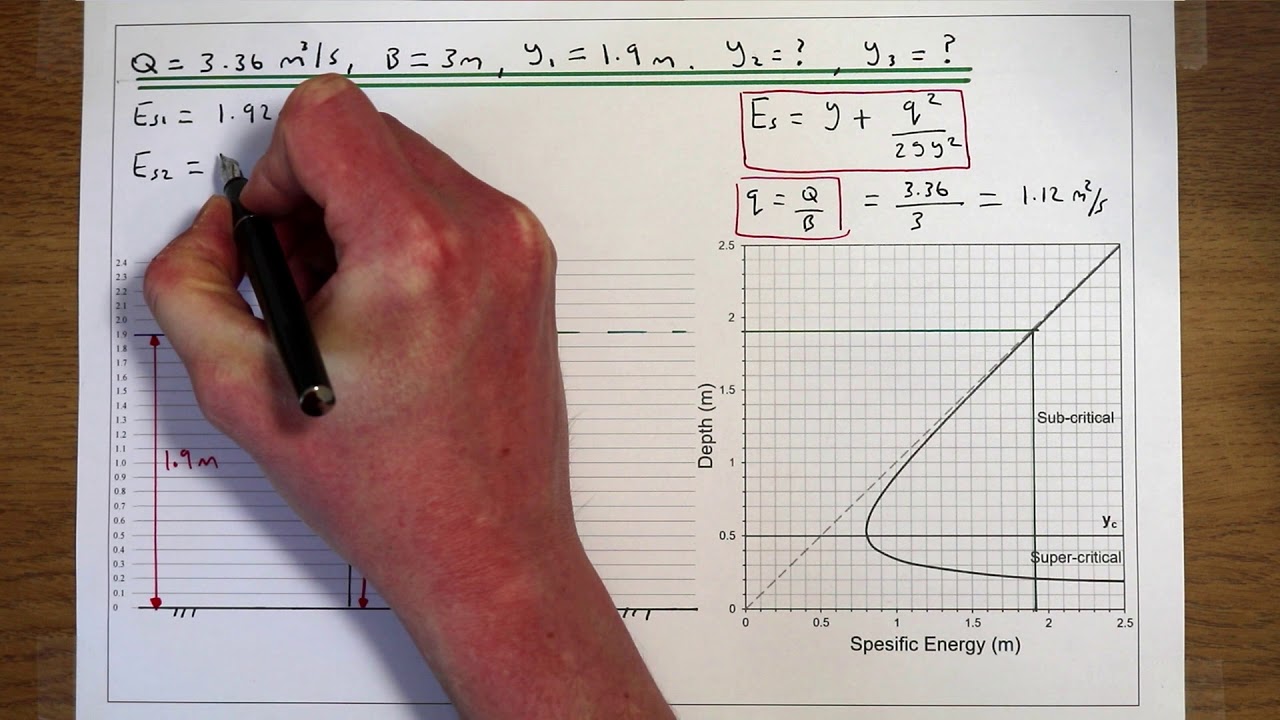 Q = 3.36 m³/s, B = 3m, y₁ = 1.9 m. y₂ = ?, y₃ = ?
Es₁ = 1.92
Es₂ =
Es = y + q²/2gy²
q = Q/B = 3.36/3 = 1.12 m²/s
2.4
2.3
2.2
2.1
2.0
1.9
1.8
1.7
1.6
1.5
1.4
1.3
1.2
1.1
1.0
0.9
0.8
0.7
0.6
0.5
0.4
0.3
0.2
0.1
0
1.9m
2.5
2
1.5
1
0.5
0
Depth (m)
Sub-critical
yc
Super-critical
0 0.5 1 1.5 2 2.5
Spesific Energy (m)